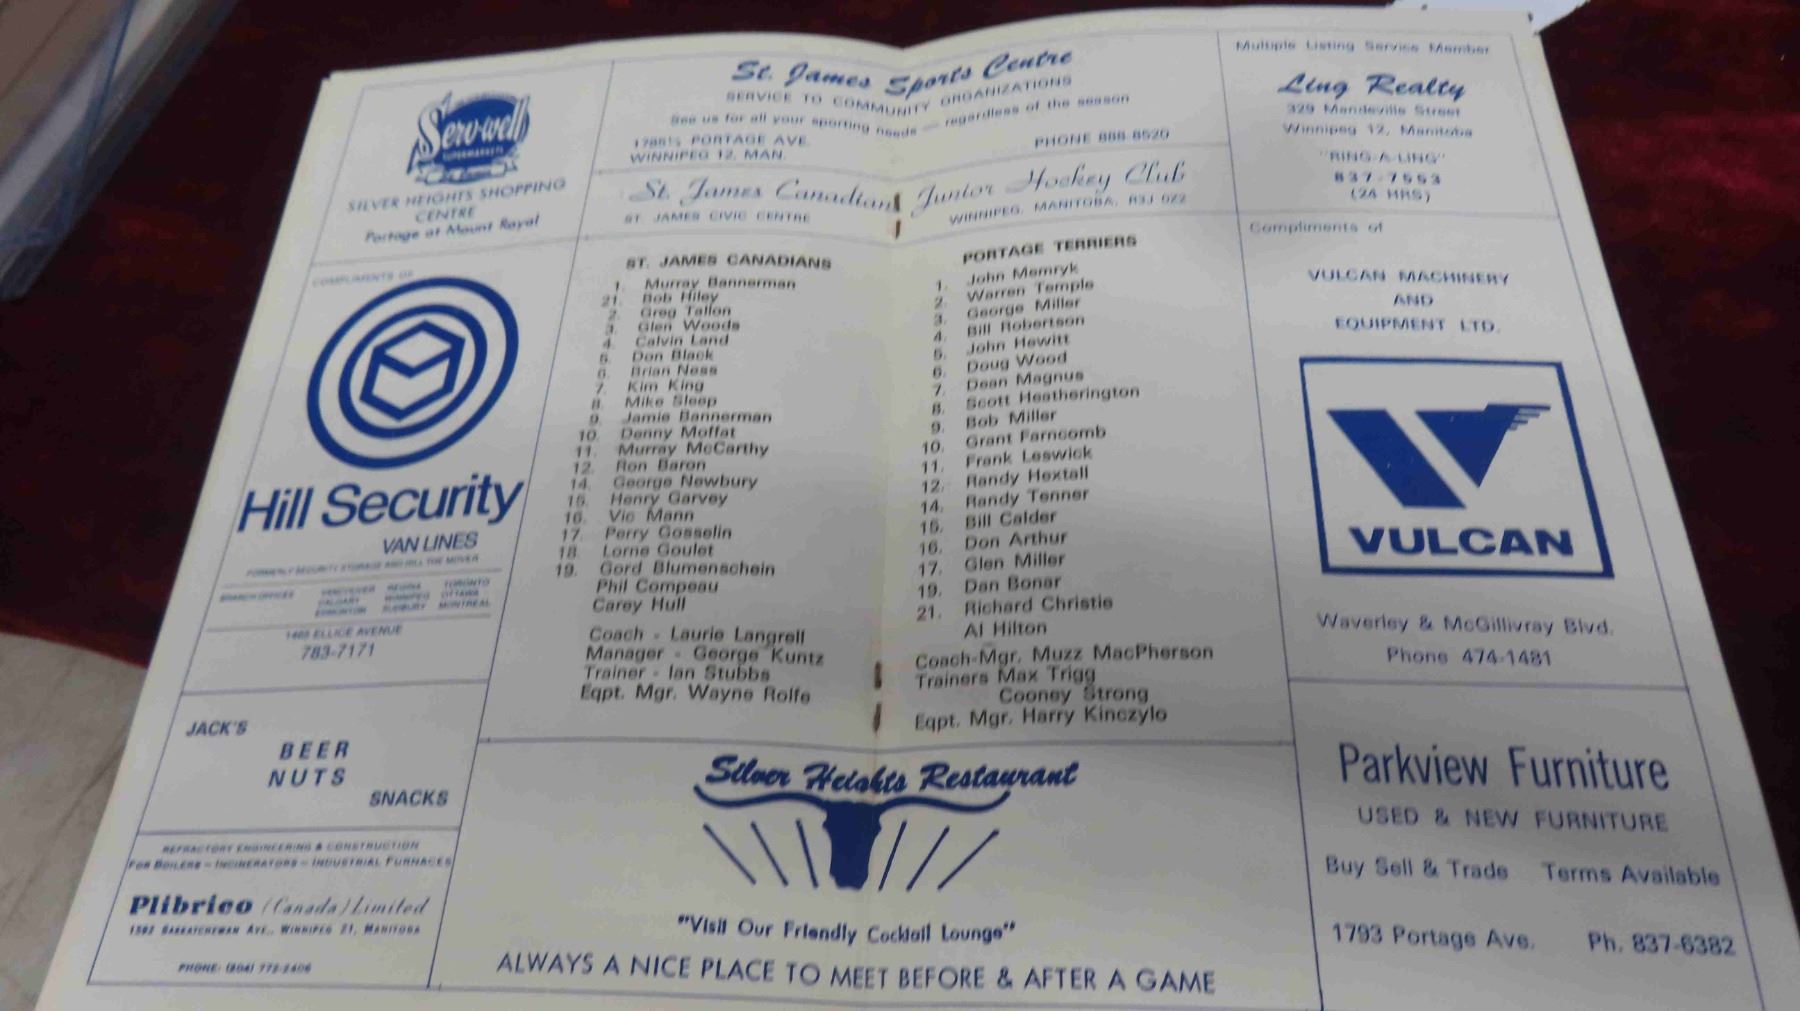 Serv-well
SUPERMARKETS
SILVER HEIGHTS SHOPPING
CENTRE
Portage at Mount Royal
COMPLIMENTS OF
Hill Security
VAN LINES
FORMERLY SECURITY STORAGE AND HILL THE MOVER
BRANCH OFFICES
VANCOUVER REGINA TORONTO
CALGARY WINNIPEG OTTAWA
EDMONTON SUDBURY MONTREAL
ELLICE AVENUE
783-7171
JACK'S
BEER
NUTS
SNACKS
REFRACTORY ENGINEERING & CONSTRUCTION
FOR BOILERS - INCINERATORS - INDUSTRIAL FURNACES
Plibrico (Canada) Limited
SASKATCHEWAN AVE., WINNIPEG 21, MANITOBA
PHONE: (204)
St. James Sports Centre
SERVICE TO COMMUNITY ORGANIZATIONS
See us for all your sporting needs — regardless of the season
PORTAGE AVE.
WINNIPEG 12, MAN.
PHONE 888-8520
St. James Canadians Junior Hockey Club
ST. JAMES CIVIC CENTRE
WINNIPEG, MANITOBA, R3J 0Z2
ST. JAMES CANADIANS
1. Murray Bannerman
21. Bob Hiley
2. Greg Tallon
3. Glen Woods
4. Calvin Land
5. Don Black
6. Brian Ness
7. Kim King
8. Mike Sleep
9. Jamie Bannerman
10. Denny Moffat
11. Murray McCarthy
12. Ron Baron
14. George Newbury
15. Henry Garvey
16. Vic Mann
17. Perry Gosselin
18. Lorne Goulet
19. Gord Blumenschein
Phil Compeau
Carey Hull
Coach - Laurie Langrell
Manager - George Kuntz
Trainer - Ian Stubbs
Eqpt. Mgr. Wayne Rolfe
PORTAGE TERRIERS
1. John Memryk
2. Warren Temple
3. George Miller
4. Bill Robertson
5. John Hewitt
6. Doug Wood
7. Dean Magnus
8. Scott Heatherington
9. Bob Miller
10. Grant Farncomb
11. Frank Leswick
12. Randy Hextall
14. Randy Tenner
15. Bill Calder
16. Don Arthur
17. Glen Miller
19. Dan Bonar
21. Richard Christie
Al Hilton
Coach-Mgr. Muzz MacPherson
Trainers Max Trigg
Cooney Strong
Eqpt. Mgr. Harry Kinczylo
Silver Heights Restaurant
"Visit Our Friendly Cocktail Lounge"
ALWAYS A NICE PLACE TO MEET BEFORE & AFTER A GAME
Multiple Listing Service Member
Ling Realty
329 Mandeville Street
Winnipeg 12, Manitoba
"RING-A-LING"
837-7553
(24 HRS)
Compliments of
VULCAN MACHINERY
AND
EQUIPMENT LTD.
VULCAN
Waverley & McGillivray Blvd.
Phone 474-1481
Parkview Furniture
USED & NEW FURNITURE
Buy Sell & Trade Terms Available
1793 Portage Ave. Ph. 837-6382